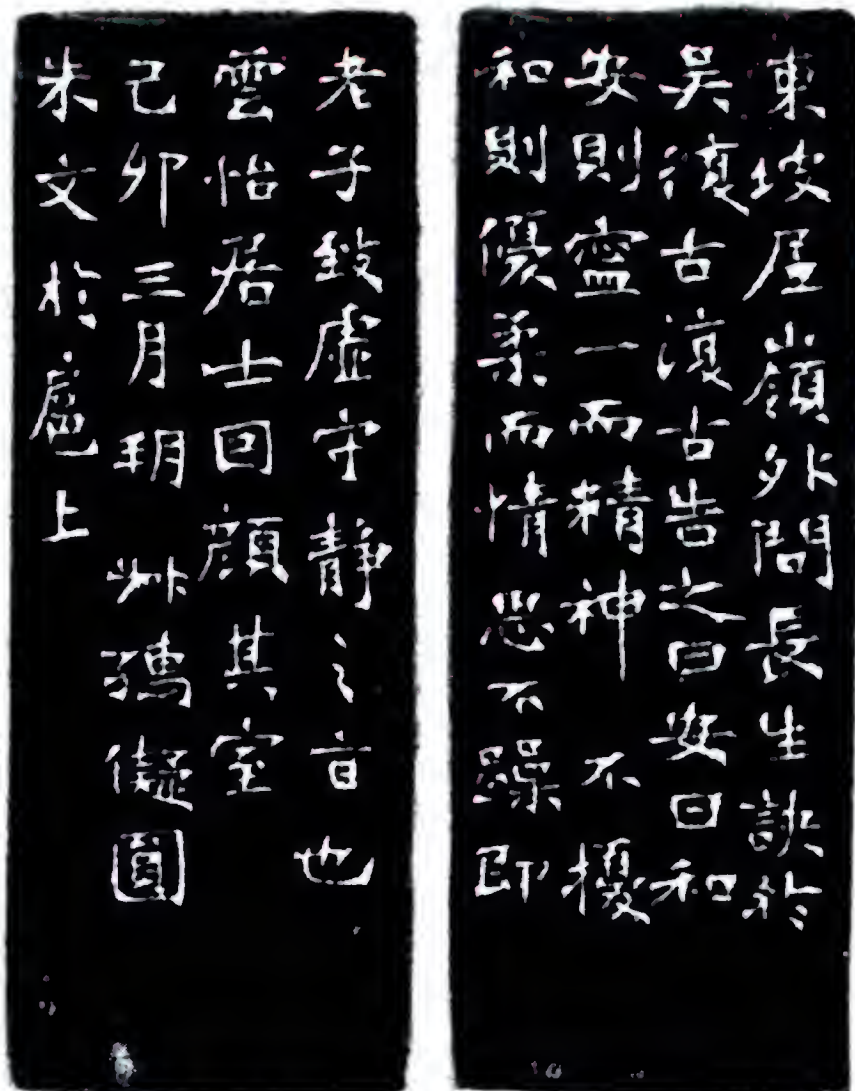 東坡居嶺外問長生訣於
吳復古復古告之曰安曰和
安則寍一而精神不擾
和則優柔而情思不躁即
老子致虛守靜之旨也
雲怡居士囙顏其室
己卯三月朔 艸 儗圓
朱文於扈上